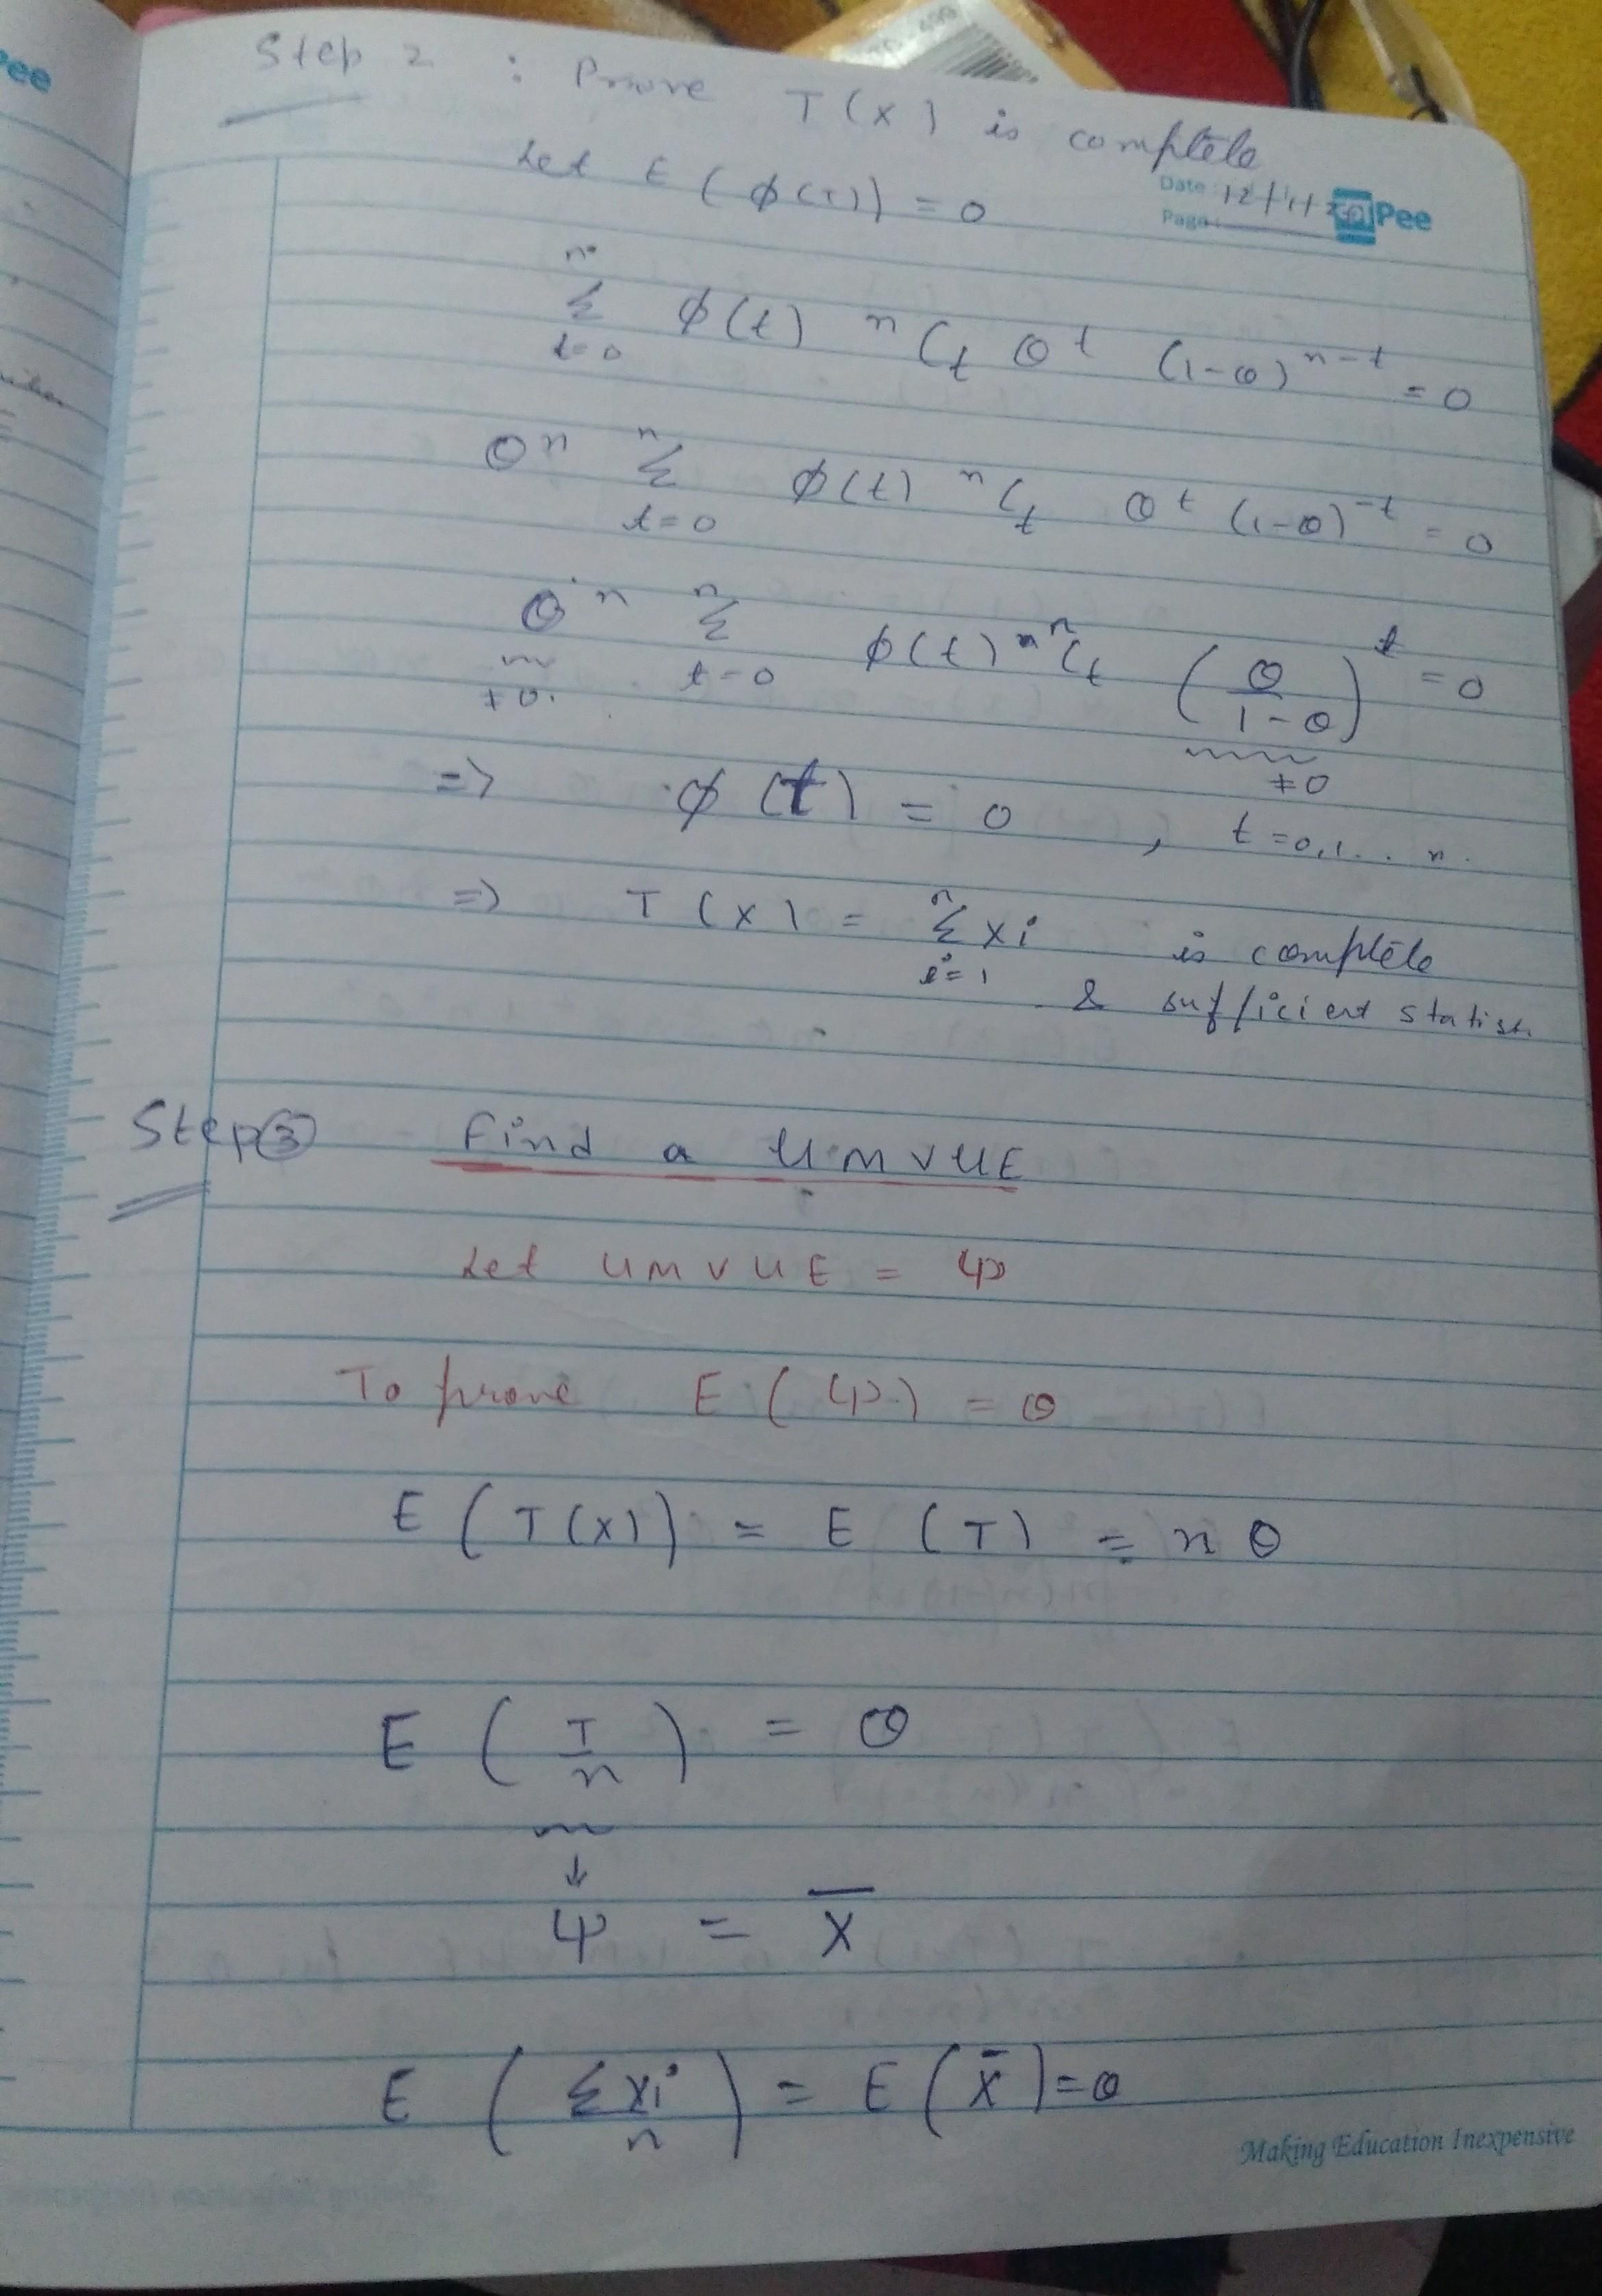 Pee
Step 2 : Prove T(X) is complete
Let E(ϕ(T)) = 0
Date: 12/11/20
Page:
Pee
n
Σ ϕ(t) ⁿCₜ θᵗ (1-θ)ⁿ⁻ᵗ = 0
t=0
θⁿ n
Σ ϕ(t) ⁿCₜ θᵗ (1-θ)⁻ᵗ = 0
t=0
θⁿ n
Σ ϕ(t) ⁿCₜ (θ/1-θ)ᵗ = 0
≠0. t=0 ≠0
=> ϕ(t) = 0 , t=0,1... n.
=> T(X) = Σ xi is complete
i=1
& sufficient statisti
Step ③ Find a UMVUE
Let UMVUE = ψ
To prove E(ψ) = θ
E(T(X)) = E(T) = nθ
E(T/n) = θ
↓
ψ = X̄
E(Σxi/n) = E(X̄) = θ
Making Education Inexpensive